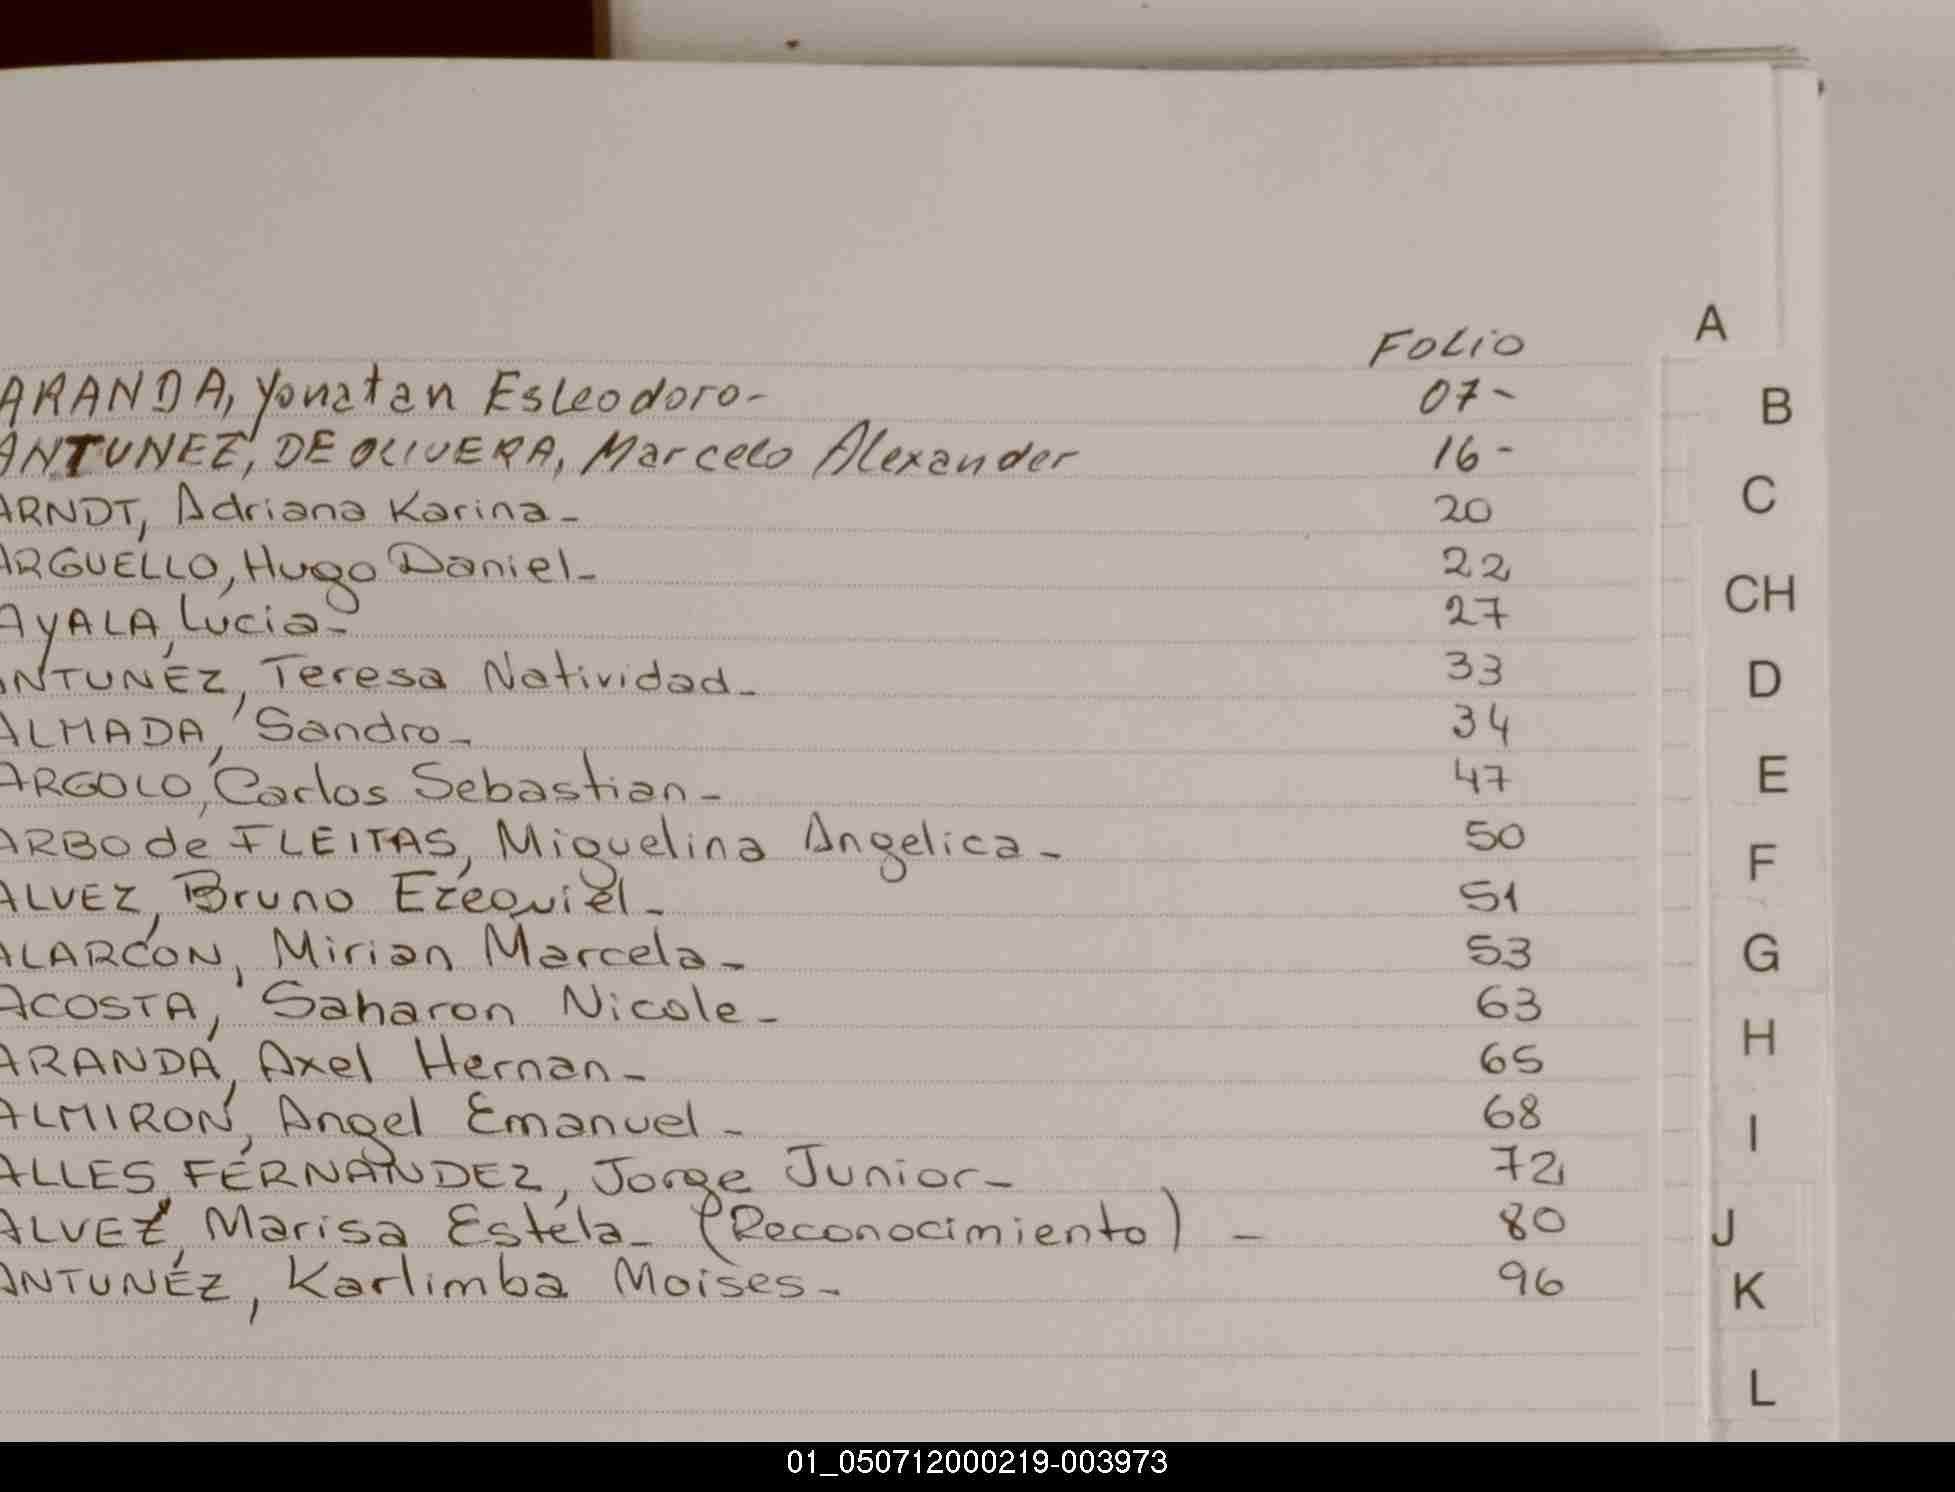 FOLIO
ARANDA, Yonatan Esleodoro- 07-
ANTUNEZ, DE OLIVERA, Marcelo Alexander 16-
ARNDT, Adriana Karina- 20
ARGUELLO, Hugo Daniel- 22
AYALA, Lucia- 27
ANTUNEZ, Teresa Natividad- 33
ALMADA, Sandro- 34
ARGOLO, Carlos Sebastian- 47
ARBO de FLEITAS, Miguelina Angelica- 50
ALVEZ, Bruno Ezequiel- 51
ALARCON, Mirian Marcela- 53
ACOSTA, Saharon Nicole- 63
ARANDA, Axel Hernan- 65
ALMIRON, Angel Emanuel- 68
ALLES FERNANDEZ, Jorge Junior- 72
ALVEZ, Marisa Estela- (Reconocimiento) - 80
ANTUNEZ, Karlimba Moises- 96
A
B
C
CH
D
E
F
G
H
I
J
K
L
01_050712000219-003973